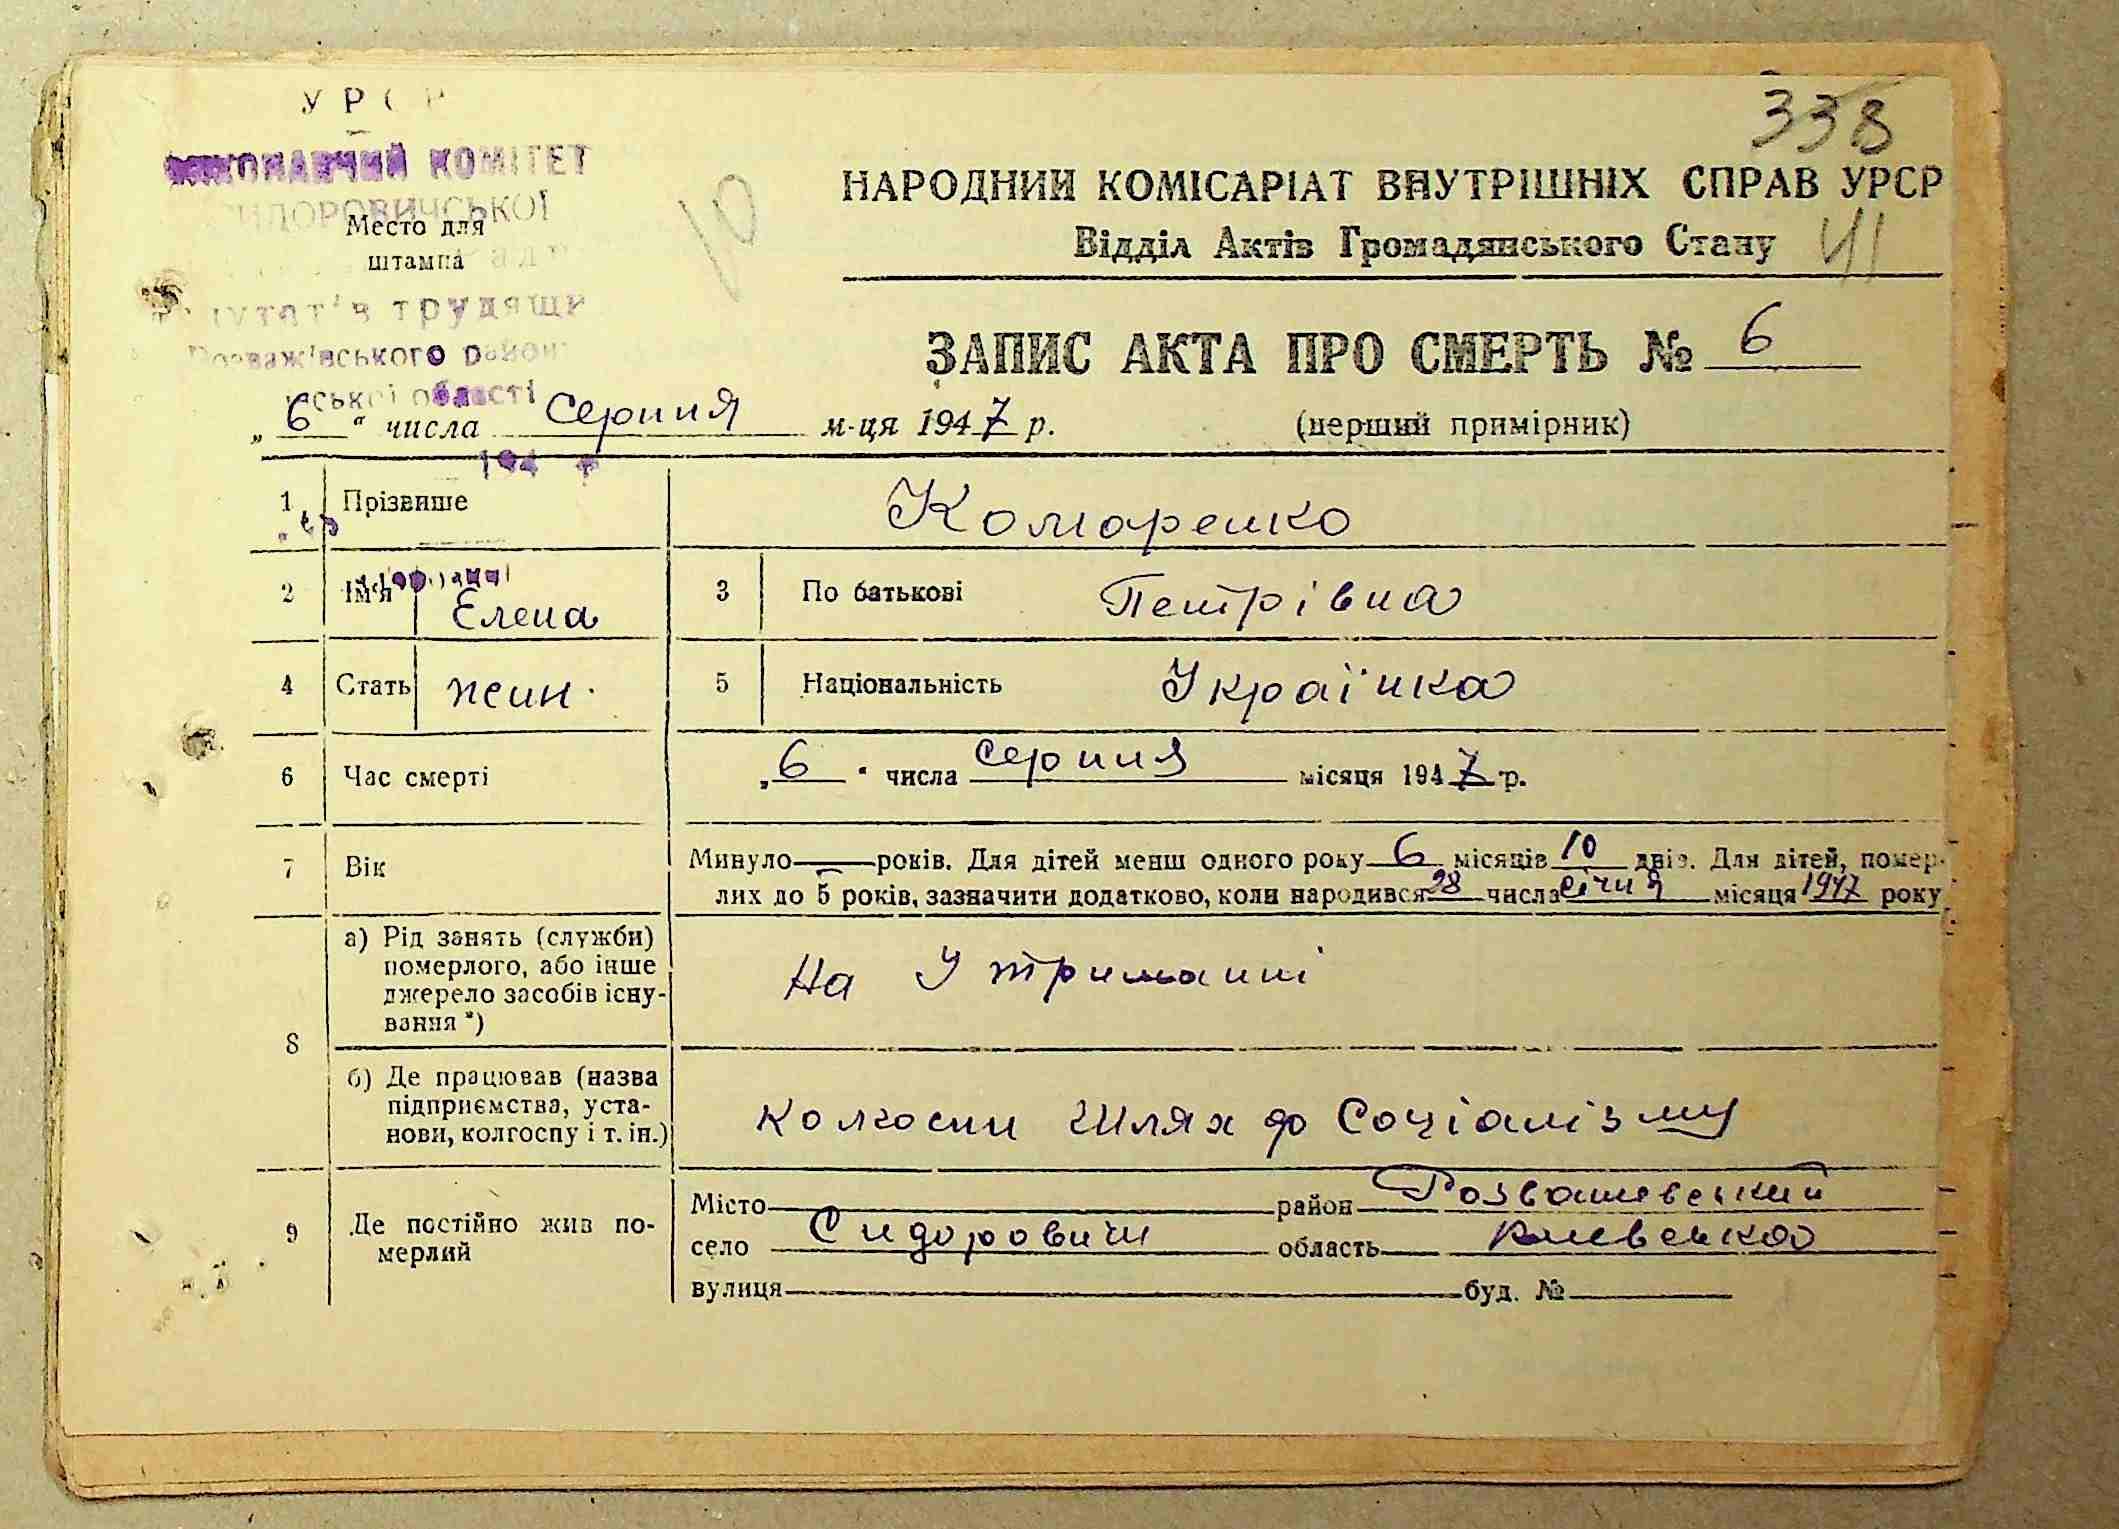 УРСР
338
ВИКОНАВЧИЙ КОМІТЕТ
СИДОРОВИЧСЬКОЇ
10
Место для
штампа
НАРОДНИЙ КОМІСАРІАТ ВНУТРІШНІХ СПРАВ УРСР
Відділ Актів Громадянського Стану
41
трудящи
Розважівського район
ської області
ЗАПИС АКТА ПРО СМЕРТЬ № 6
„6“ числа Серпня м-ця 1947 р. (перший примірник)
194 р
1 Прізвище Комаренко
2 Ім'я Елена 3 По батькові Петрівна
4 Стать жін. 5 Національність Українка
6 Час смерті „6“ числа Серпня місяця 1947 р.
7 Вік Минуло — років. Для дітей менш одного року 6 місяців 10 днів. Для дітей, помер-
лих до 5 років, зазначити додатково, коли народився 28 числа січня місяця 1947 року
8 а) Рід занять (служби)
померлого, або інше
джерело засобів існу-
вання *)
На Утриманні
б) Де працював (назва
підприємства, уста-
нови, колгоспу і т. ін.)
Колхосп Шлях до Соціалізму
9 Де постійно жив по-
мерлий
Місто район Розважевський
село Сидоровичи область Киевська
вулиця буд. №